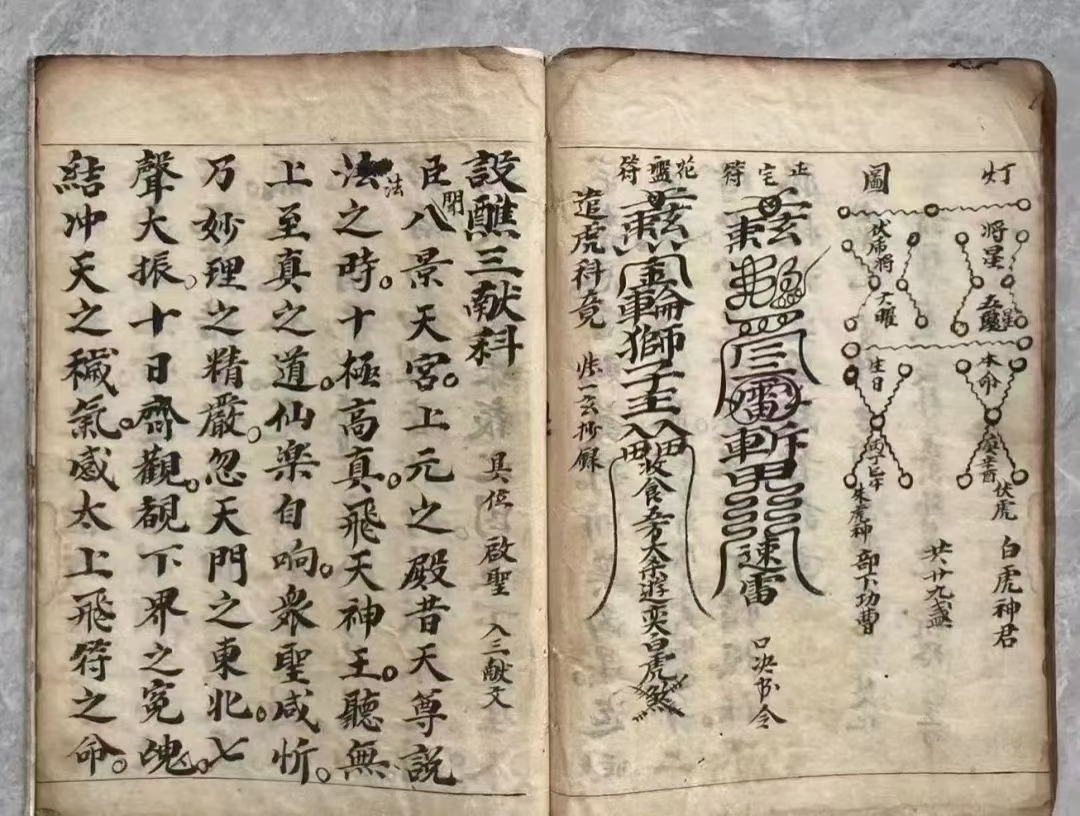 灯
將星
五鬼星
本命
伏虎
白虎神君
共廿九盞
圖
伏席將
大曜
生日
部下功曹
正宅符
斬
速雷
口决書令
花盤符
金輪獅子王
收食
白虎煞
遣虎科竟
抄錄
設醮三献科
具位
啟聖
入三献文
臣聞八景天宮上元之殿昔天尊説
法之時十極高真飛天神王聽無
上至真之道仙樂自响衆聖咸忻
乃妙理之精嚴忽天門之東北七
聲大振十日齊觀覩下界之寃魂
結冲天之穢氣感太上飛符之命